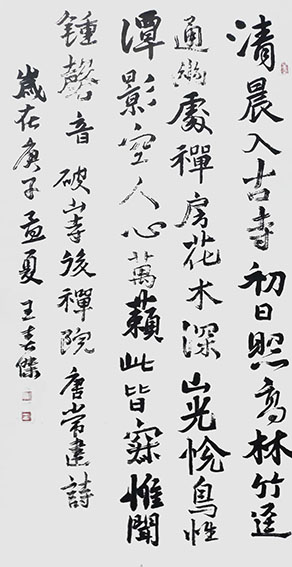 清晨入古寺初日照高林竹逕
通幽處禪房花木深山光悅鳥性
潭影空人心萬籟此皆寂惟聞
鍾磬音破山寺後禪院唐常建詩
歲在庚子孟夏王春傑